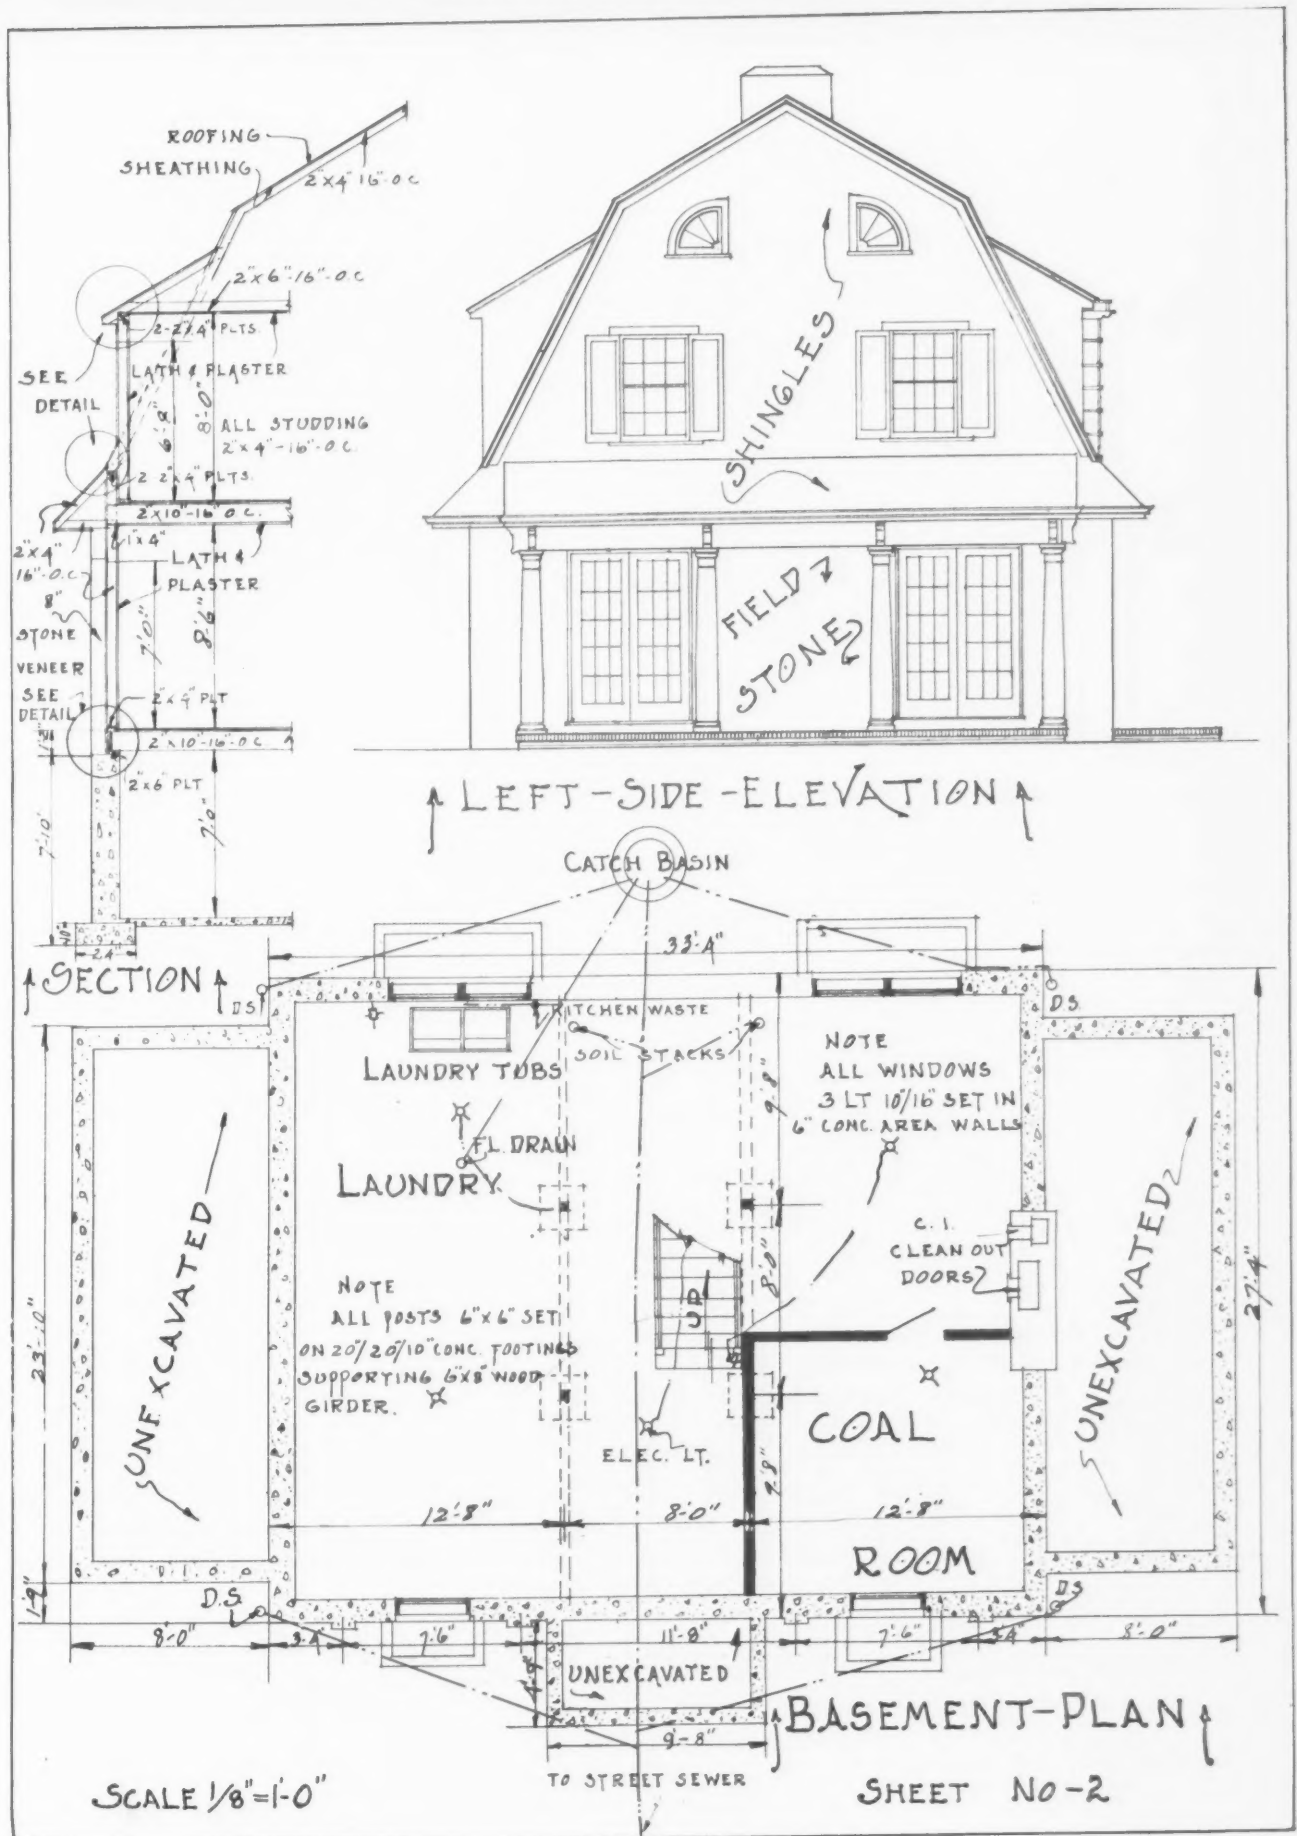 ROOFING
SHEATHING
2"x4" 16"-O.C
2"x6"-16"-O.C
2-2"x4" PLTS.
SEE
DETAIL
LATH & PLASTER
6'-8"
8'-0"
ALL STUDDING
2"x4"-16"-O.C.
2 2"x4" PLTS.
2"x10"-16" O.C.
1"x4"
2"x4"
16"-O.C
LATH &
PLASTER
8"
STONE
VENEER
SEE
DETAIL
7'-0"
8'-6"
2"x4" PLT
2"x10"-16"-O.C
2"x6" PLT
7'-10"
7'-0"
10"
24"
SECTION
SHINGLES
FIELD
STONE
LEFT-SIDE-ELEVATION
CATCH BASIN
33'-4"
D.S.
D.S.
KITCHEN WASTE
SOIL STACKS
LAUNDRY TUBS
FL. DRAIN
LAUNDRY
NOTE
ALL WINDOWS
3 LT 10"/16" SET IN
6" CONC. AREA WALLS
9'-8"
C. I.
CLEAN OUT
DOORS
8'-0"
UP
NOTE
ALL POSTS 6"x6" SET
ON 20"/20"/10" CONC. FOOTINGS
SUPPORTING 6"X8" WOOD
GIRDER.
UNEXCAVATED
UNEXCAVATED
23'-10"
27'-4"
ELEC. LT.
COAL
ROOM
9'-8"
12'-8"
8'-0"
12'-8"
1'-9"
D.S.
D.S
8'-0"
3'-4"
7'-6"
11'-8"
7'-6"
3'-4"
8'-0"
4'-9"
UNEXCAVATED
9'-8"
BASEMENT-PLAN
TO STREET SEWER
SCALE 1/8"=1'-0"
SHEET NO-2